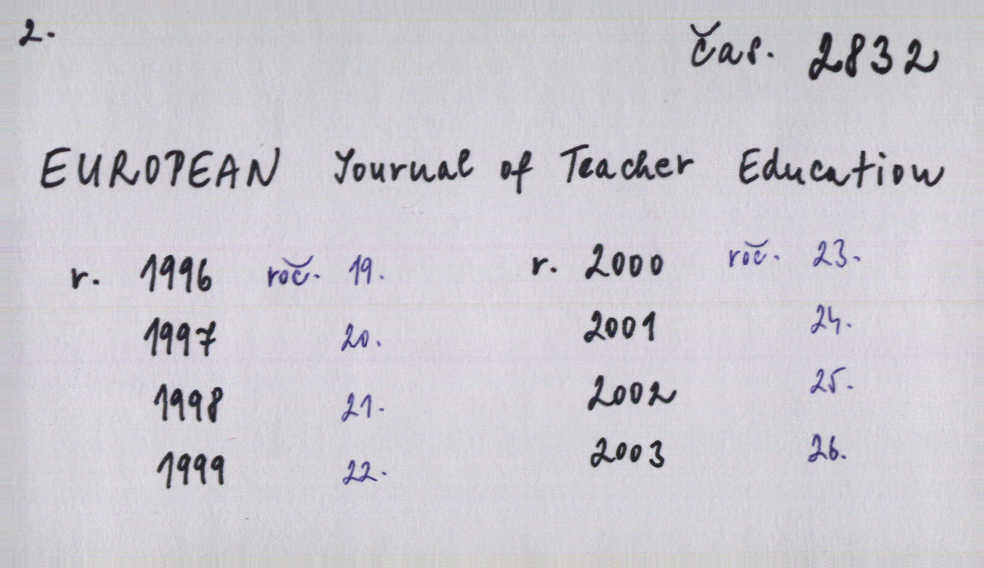 2.
Čas. 2832
EUROPEAN Journal of Teacher Education
r. 1996 roč. 19. r. 2000 roč. 23.
1997 20. 2001 24.
1998 21. 2002 25.
1999 22. 2003 26.